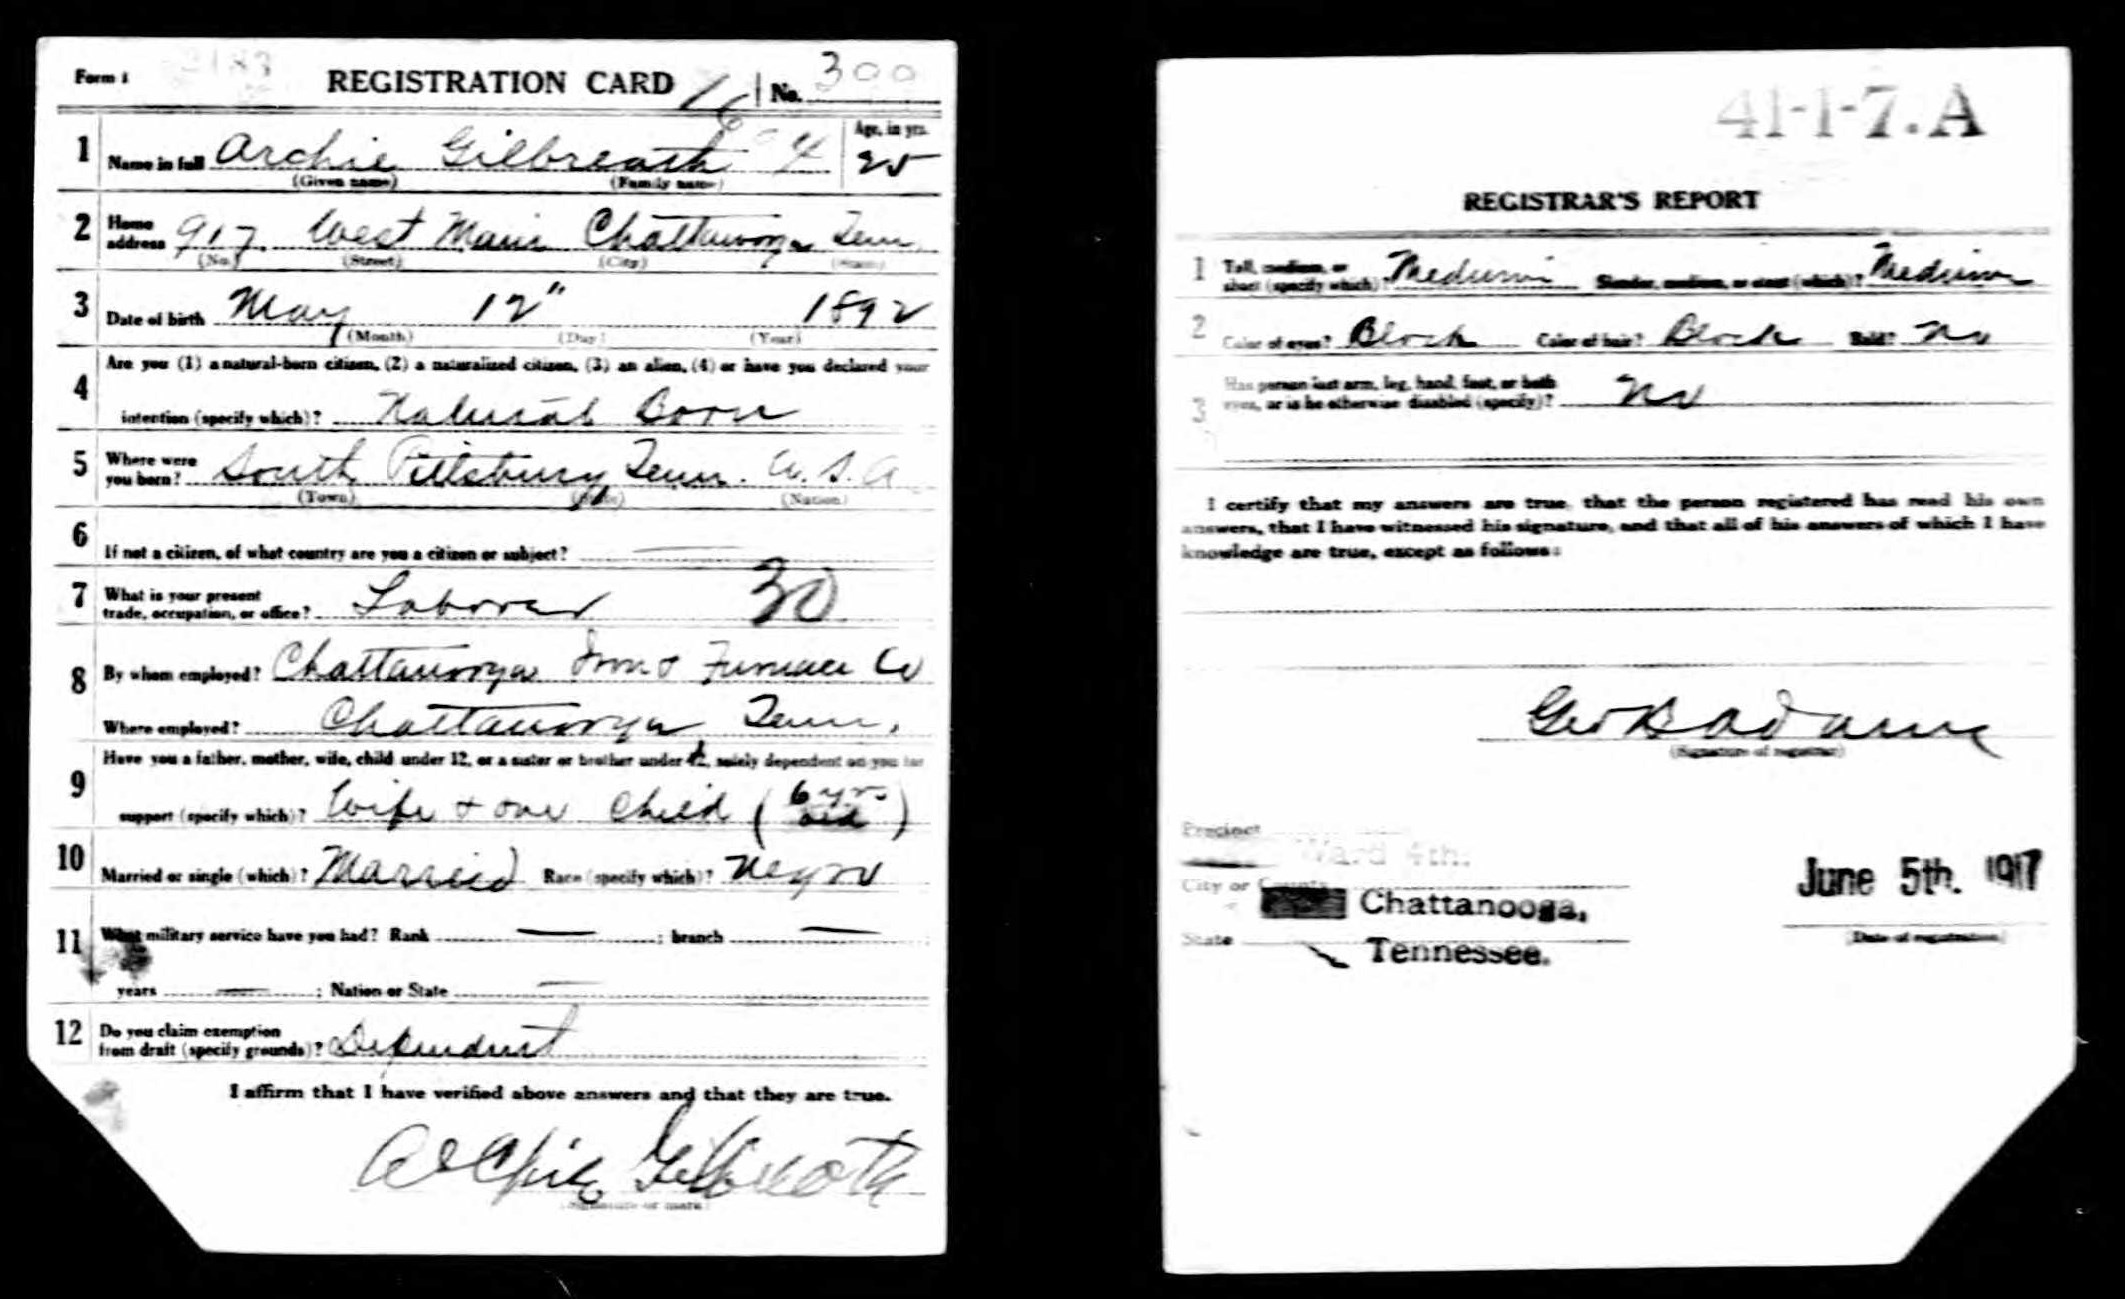 Form 1 2183 REGISTRATION CARD No. 300
1 Name in full Archie Gilbreath 4 Age, in yrs. 25
(Given name) (Family name)
2 Home address 917 West Main Chattanooga Tenn.
(No.) (Street) (City) (State)
3 Date of birth May 12" 1892
(Month) (Day) (Year)
4 Are you (1) a natural-born citizen, (2) a naturalized citizen, (3) an alien, (4) or have you declared your
intention (specify which)? Natural Born
5 Where were you born? South Pittsburg Tenn. U.S.A
(Town) (State) (Nation)
6 If not a citizen, of what country are you a citizen or subject?
7 What is your present trade, occupation, or office? Laborer 30
8 By whom employed? Chattanooga Iron & Furnace Co
Where employed? Chattanooga, Tenn.
9 Have you a father, mother, wife, child under 12, or a sister or brother under 12, solely dependent on you for
support (specify which)? Wife + one child (6 yrs old)
10 Married or single (which)? Married Race (specify which)? Negro
11 What military service have you had? Rank — ; branch —
years — ; Nation or State —
12 Do you claim exemption from draft (specify grounds)? Dependent
I affirm that I have verified above answers and that they are true.
Archie Gilbreath
(Signature or mark)
41-1-7. A
REGISTRAR'S REPORT
1 Tall, medium, or short (specify which)? Medium Slender, medium, or stout (which)? Medium
2 Color of eyes? Black Color of hair? Black Bald? No
3 Has person lost arm, leg, hand, foot, or both eyes, or is he otherwise disabled (specify)? No
I certify that my answers are true, that the person registered has read his own
answers, that I have witnessed his signature, and that all of his answers of which I have
knowledge are true, except as follows:
Geo B Adams
(Signature of registrar)
Precinct Ward 4th.
City or County Chattanooga,
State Tennessee.
June 5th. 1917
(Date of registration)